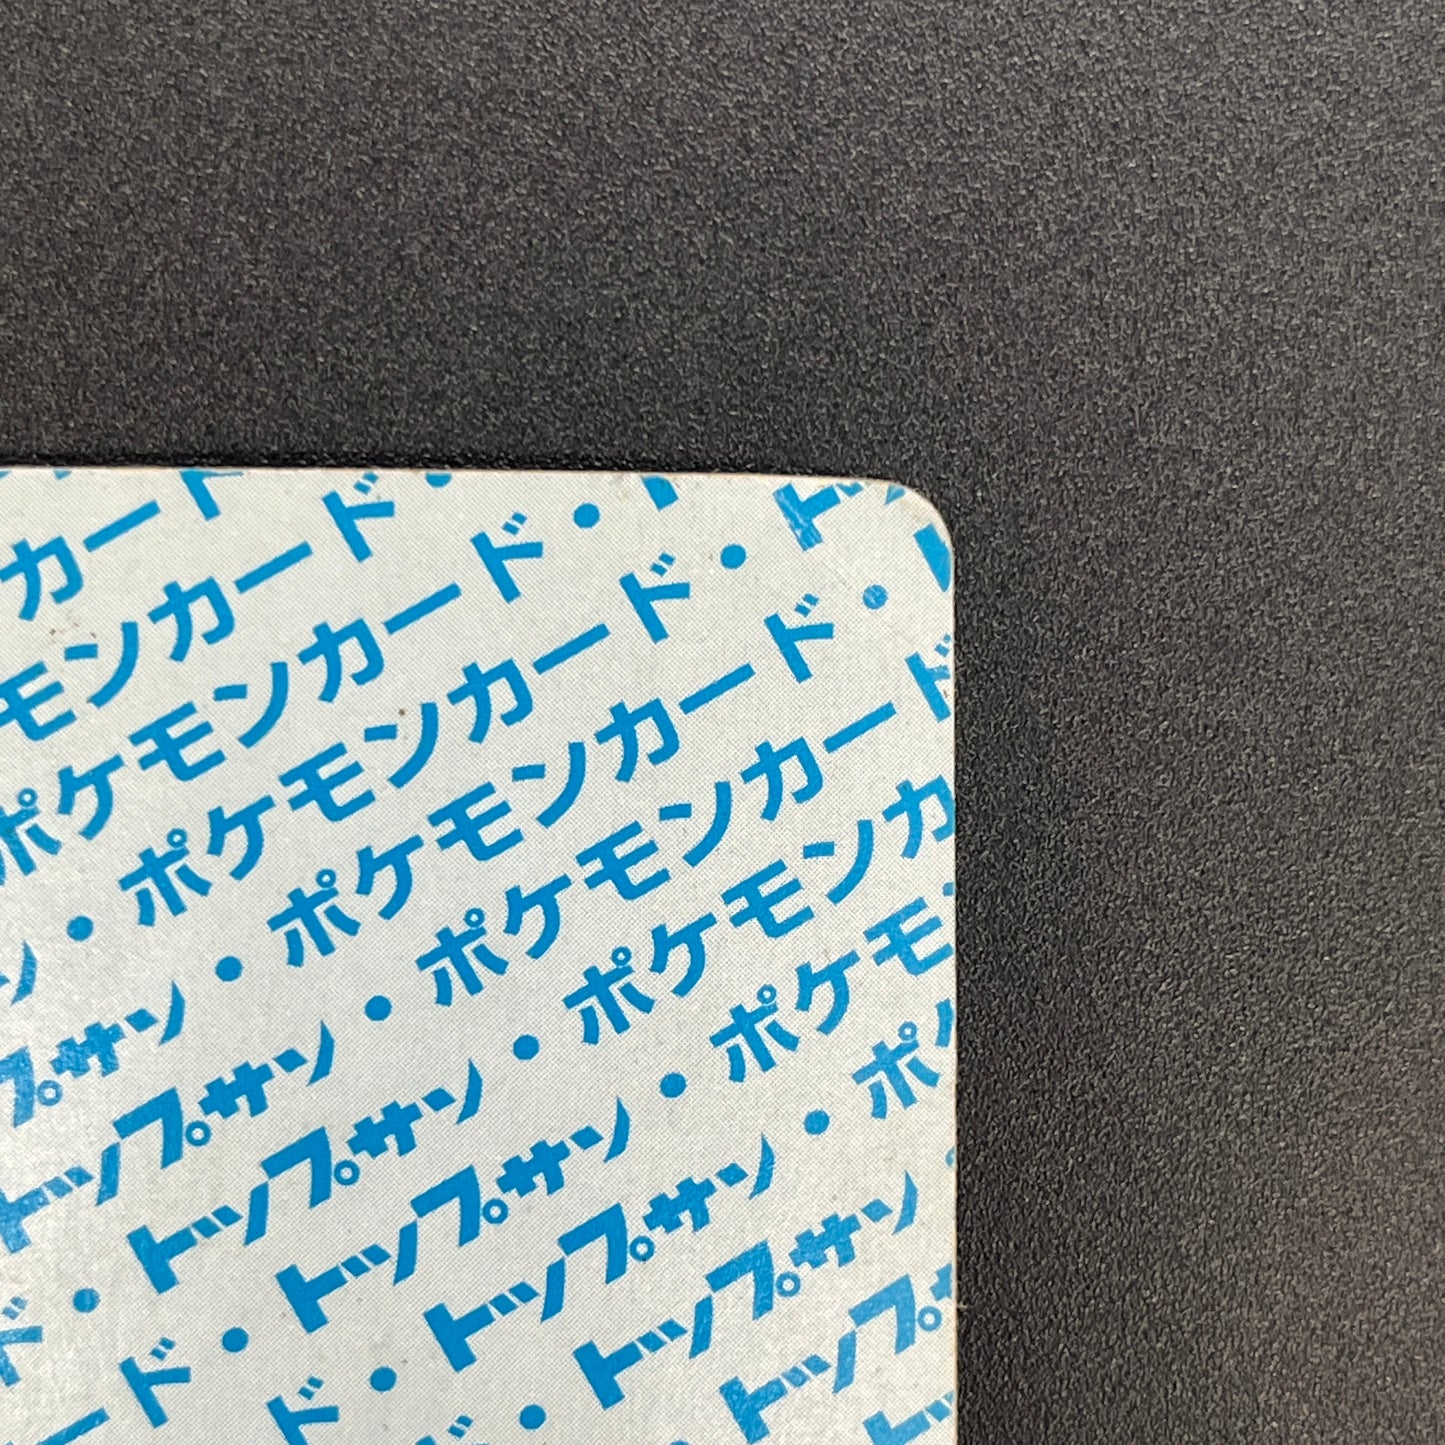 カード
モンカード・
ポケモンカード・ト
ン・ポケモンカード・ト
プサン・ポケモンカード・
トップサン・ポケモンカード
・トップサン・ポケモンカ
ド・トップサン・ポケモン
ード・トップサン・ポケ
ド・トップサン
トップ